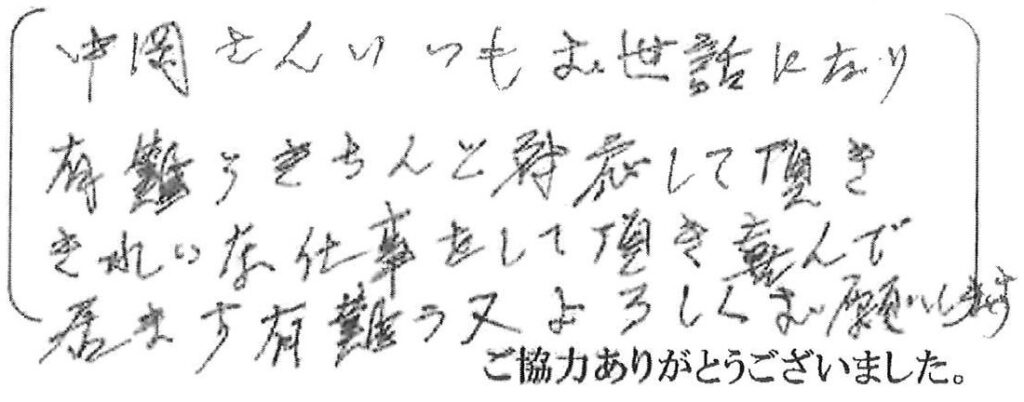 中岡さんいつもお世話になり
有難うきちんと対応して頂き
きれいな仕事をして頂き喜んで
居ます有難う又よろしくお願いします
ご協力ありがとうございました。